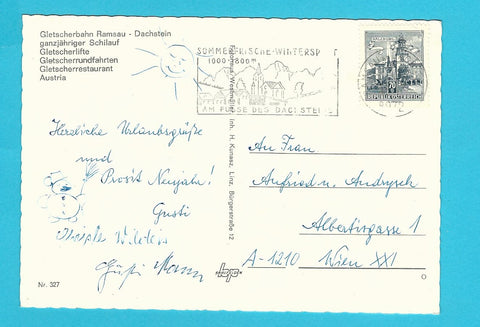 Gletscherbahn Ramsau - Dachstein
ganzjähriger Schilauf
Gletscherlifte
Gletscherrundfahrten
Gletscherrestaurant
Austria
SOMMERFRISCHE-WINTERSP
AM FUSSE DES DACHSTEIN
REPUBLIK ÖSTERREICH
Inh. H. Kunasz, Linz, Bürgerstraße 12
Herzliche Urlaubsgrüße
und
Prosit Neujahr!
Gusti
An Frau
Aufried u. Andrysek
Albertigasse 1
A-1210 Wien XXI
Nr. 327